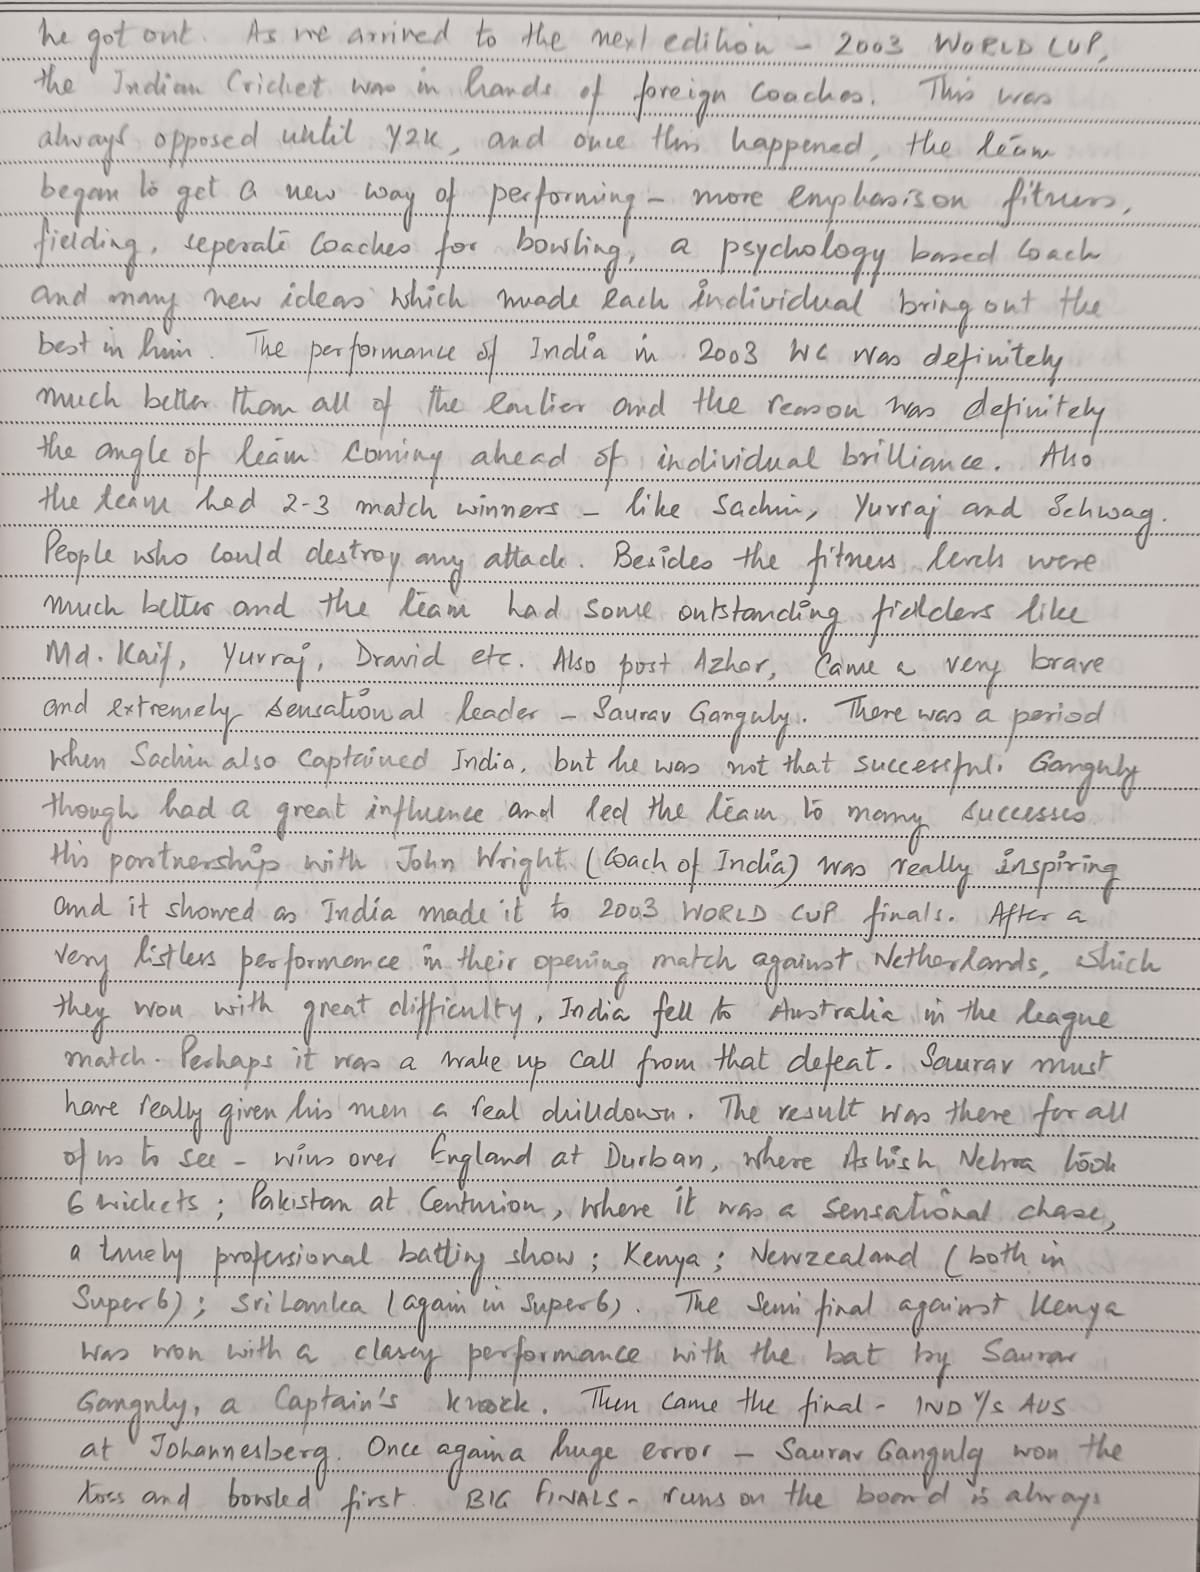 he got out. As we arrived to the next edition - 2003 WORLD CUP,
the Indian Cricket was in hands of foreign coaches. This was
always opposed until Y2K, and once this happened, the team
began to get a new way of performing - more emphasis on fitness,
fielding, seperate coaches for bowling, a psychology based coach
and many new ideas which made each individual bring out the
best in him. The performance of India in 2003 WC was definitely
much better than all of the earlier and the reason was definitely
the angle of team coming ahead of individual brilliance. Also
the team had 2-3 match winners - like Sachin, Yuvraj and Sehwag.
People who could destroy any attack. Besides the fitness levels were
much better and the team had some outstanding fielders like
Md. Kaif, Yuvraj, Dravid etc. Also post Azhar, came a very brave
and extremely sensational leader - Saurav Ganguly. There was a period
when Sachin also captained India, but he was not that successful. Ganguly
though had a great influence and led the team to many successes
His partnership with John Wright (Coach of India) was really inspiring
and it showed as India made it to 2003 WORLD CUP finals. After a
very listless performance in their opening match against Netherlands, which
they won with great difficulty, India fell to Australia in the league
match. Perhaps it was a wake up call from that defeat. Saurav must
have really given his men a real drilldown. The result was there for all
of us to see - wins over England at Durban, where Ashish Nehra took
6 wickets; Pakistan at Centurion, where it was a sensational chase,
a timely professional batting show; Kenya; Newzealand (both in
Super 6); Sri Lanka (again in Super 6). The semi final against Kenya
was won with a classy performance with the bat by Saurav
Ganguly, a Captain's knock. Then came the final - IND V/S AUS
at Johannesberg. Once again a huge error - Saurav Ganguly won the
toss and bowled first. BIG FINALS - runs on the board is always